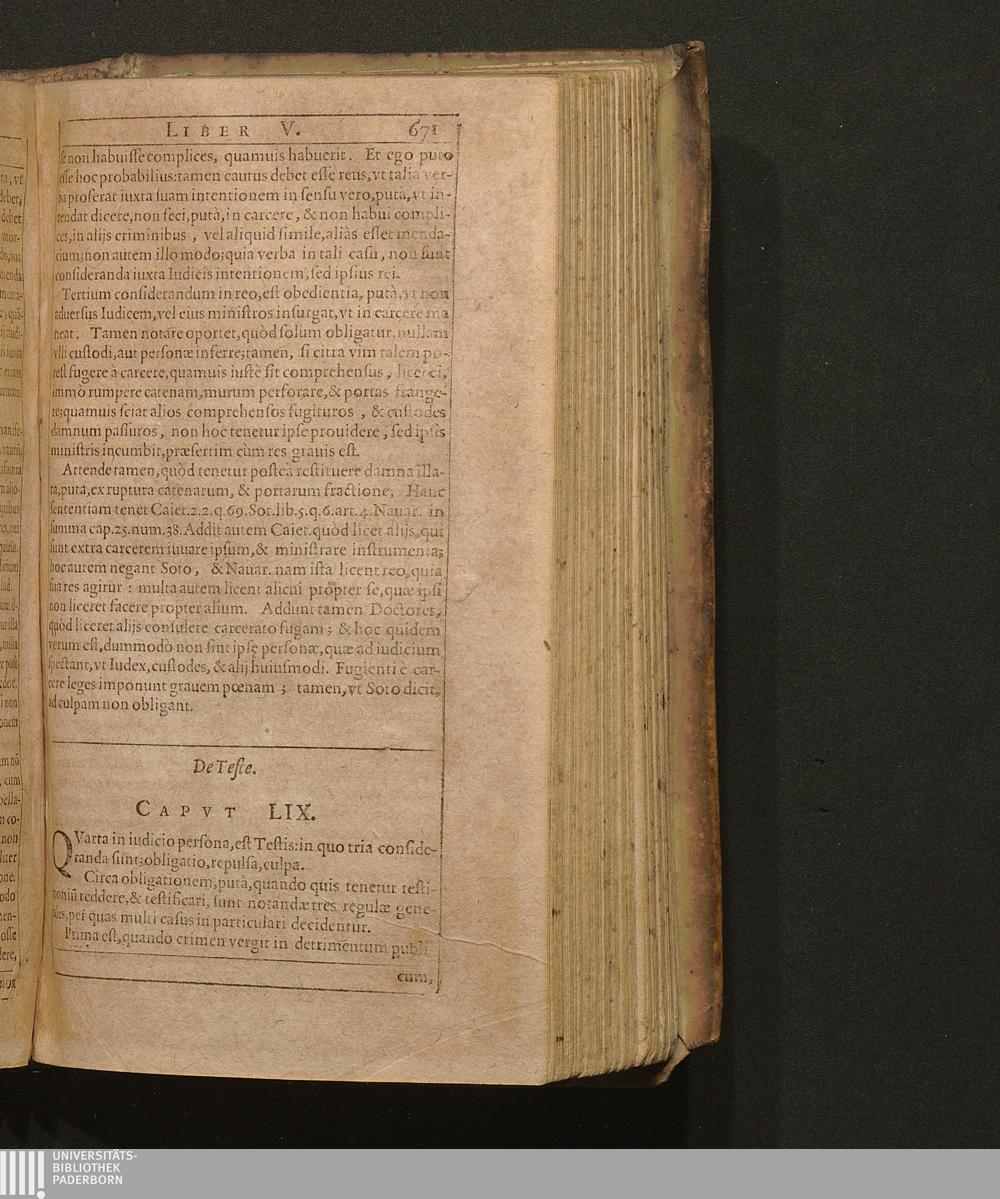 LIBER V. 671
se non habuisse complices, quamuis habuerit. Et ego puto
esse hoc probabilius:tamen cautus debet esse reus,vt talia ver-
ba proferat iuxta suam intentionem in sensu vero,putà,vt in-
tendat dicere,non feci,putà,in carcere, & non habui compli-
ces,in alijs criminibus , vel aliquid simile,aliàs esset menda-
cium;non autem illo modo;quia verba in tali casu, non sunt
consideranda iuxta Iudicis intentionem,sed ipsius rei.
Tertium considerandum in reo,est obedientia, putà,vt non
aduersus Iudicem,vel eius ministros insurgat,vt in carcere ma
neat. Tamen notare oportet,quòd solum obligatur,nullam
vlli custodi,aut personæ inferre;tamen, si citra vim talem po-
test fugere à carcere,quamuis iustè sit comprehensus, licet ei,
immò rumpere catenam,murum perforare,& portas frange-
re;quamuis sciat alios comprehensos fugituros , & custodes
damnum passuros, non hoc tenetur ipse prouidere, sed ipsis
ministris incumbit,præsertim cùm res grauis est.
Attende tamen,quòd tenetur posteà restituere damna illa-
ta,puta,ex ruptura catenarum, & portarum fractione, Hanc
sententiam tenet Caiet.2.2.q.69.Sot.lib.5.q.6.art.4.Nauar. in
summa cap.25.num.38.Addit autem Caiet.quòd licet alijs,qui
sunt extra carcerem iuuare ipsum,& ministrare instrumenta;
hoc autem negant Soto, & Nauar. nam ista licent reo,quia
sua res agitur : multa autem licent alicui propter se,quæ ipsi
non liceret facere propter alium. Addunt tamen Doctores,
quòd liceret alijs consulere carcerato fugam ; & hoc quidem
verum est,dummodò non sint ipsę personæ,quæ ad iudicium
spectant,vt Iudex,custodes, & alij huiusmodi. Fugienti è car-
cere leges imponunt grauem pœnam ; tamen,vt Soto dicit,
ad culpam non obligant.
De Teste.
CAPVT LIX.
QVarta in iudicio persona,est Testis:in quo tria conside-
randa sunt;obligatio,repulsa,culpa.
Circa obligationem,putà,quando quis tenetur testi-
moniũ reddere,& testificari, sunt notandæ tres regulæ gene-
rales,per quas multi casus in particulari decidentur.
Prima est,quando crimen vergit in detrimentum publi
cum,
UNIVERSITÄTS-
BIBLIOTHEK
PADERBORN